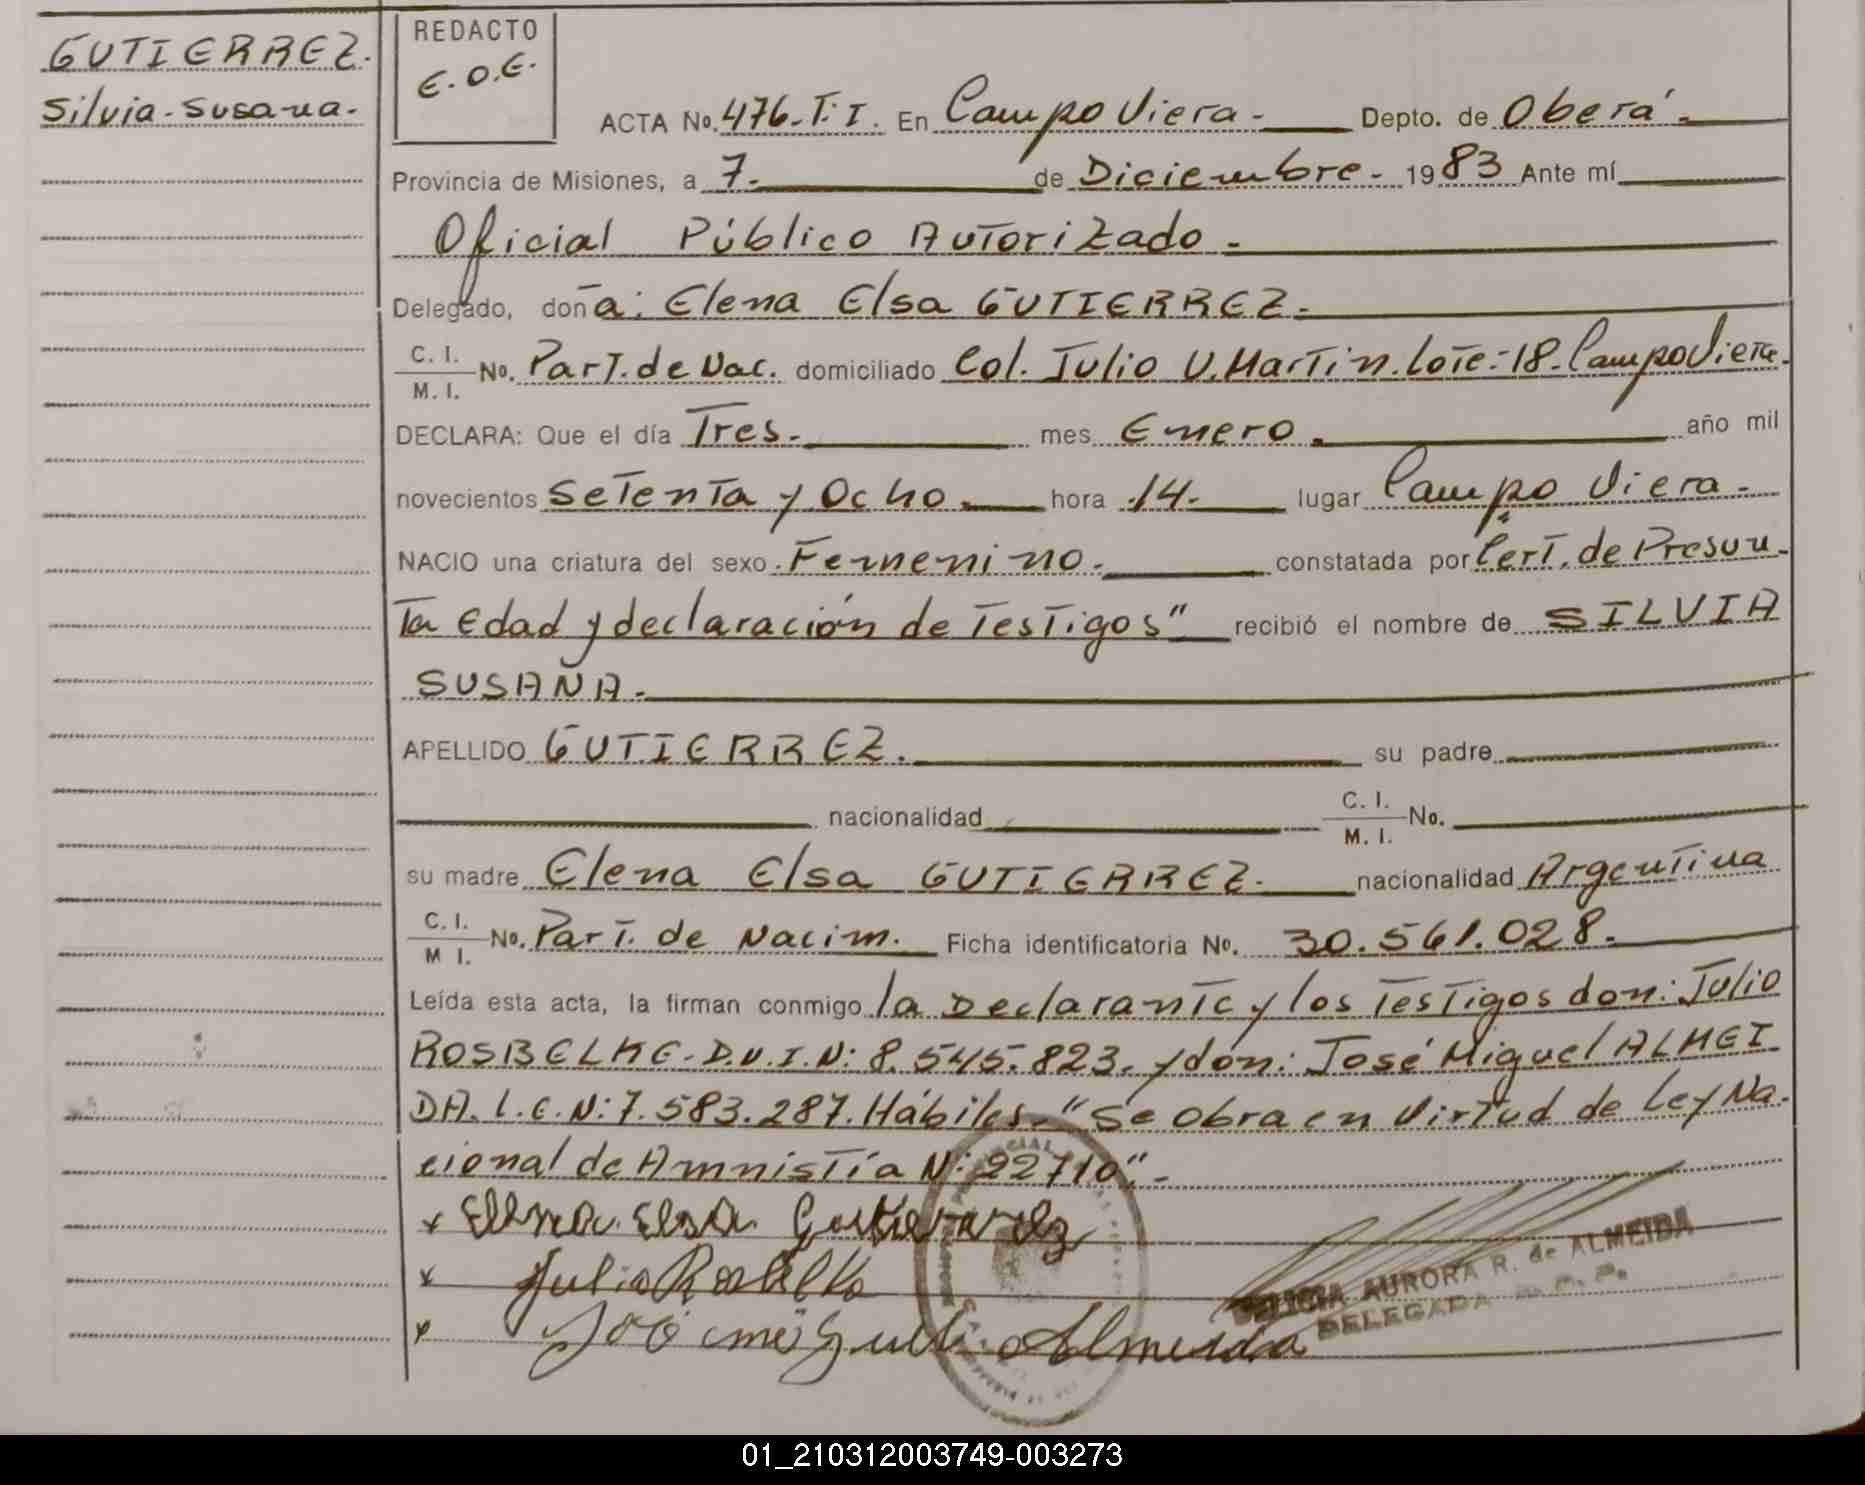 GUTIERREZ.
Silvia-Susana-
REDACTO
E.O.E.
ACTA No. 476-T.I. En Campo Viera- Depto. de Oberá-
Provincia de Misiones, a 7- de Diciembre- 1983 Ante mí
Oficial Público Autorizado-
Delegado, doña: Elena Elsa GUTIERREZ-
C. I. / M. I. No. Part. de Nac. domiciliado Col. Julio U. Martin. Lote-18-Campo Viera.
DECLARA: Que el día Tres- mes Enero. año mil
novecientos Setenta y Ocho- hora 14- lugar Campo Viera-
NACIO una criatura del sexo Femenino- constatada por "Cert. de Presun-
ta Edad y declaración de Testigos" recibió el nombre de SILVIA
SUSANA-
APELLIDO GUTIERREZ. su padre
nacionalidad C. I. / M. I. No.
su madre Elena Elsa GUTIERREZ- nacionalidad Argentina
C. I. / M I. No. Part. de Nacim. Ficha identificatoria No. 30.561.028-
Leída esta acta, la firman conmigo la Declarante y los Testigos don: Julio
ROSBELKE-D.N.I.N: 8.545.823. y don: José Miguel ALMEI
DA. L.E.N: 7.583.287. Hábiles- "Se Obra en Virtud de Ley Na-
cional de Amnistía N: 22710".-
x Elena Elsa Gutierrez
x Julio
x Almeida
AURORA R. de ALMEIDA
DELEGADA
01_210312003749-003273